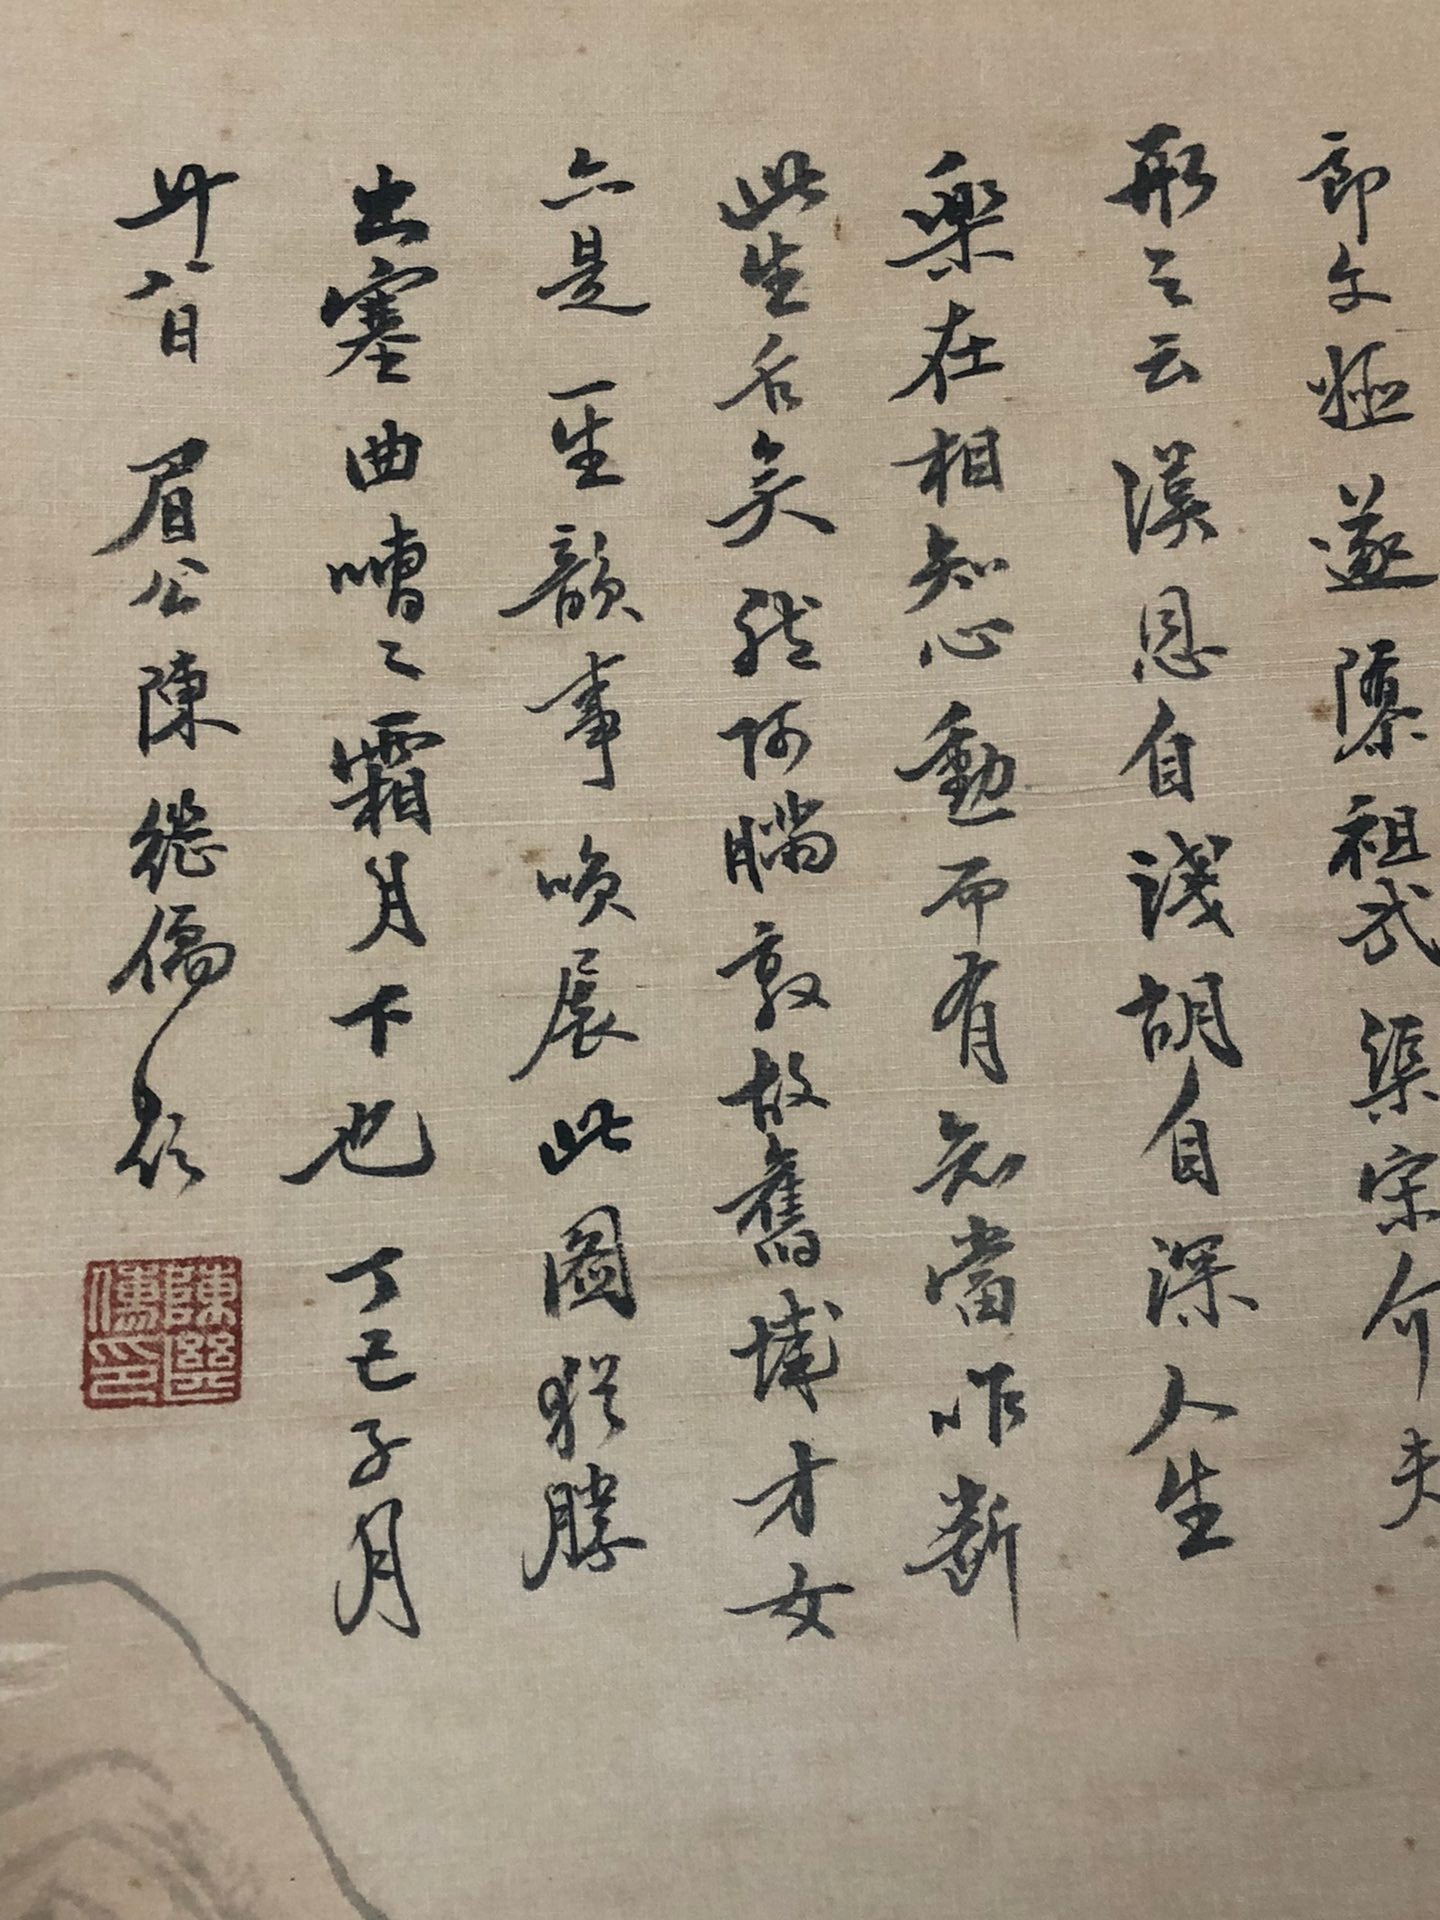 郎文極遂隳祖武渠宋介夫
形之云漢恩自淺胡自深人生
樂在相知心動而有知當咋斷
此生舌矣然阿瞞敦故舊憐才女
亦是一生韻事喚展此圖猶勝
出塞曲嘈〻霜月下也丁巳子月
廿八日眉公陳繼儒題
陳繼儒印